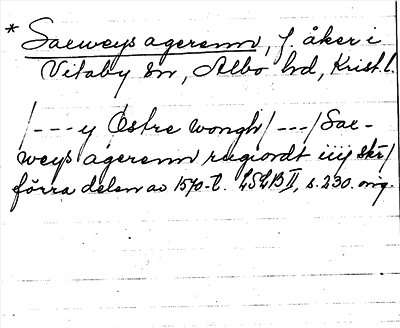 * Saeweys agerenn, f. åker i
Vitaby sn, Albo hd, Krist. l.
/--- y Östre wongh/---/ Sae-
weys agerenn rugiordt iiij skr/
förra delen av 1570-t. LSLB II, s. 230. orig.